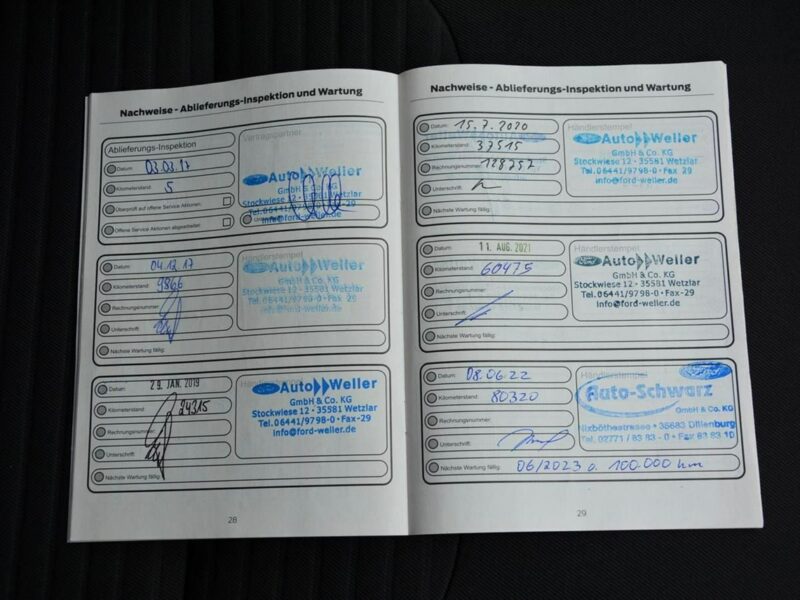 Nachweise - Ablieferungs-Inspektion und Wartung
Ablieferungs-Inspektion
Datum 03.03.17
Kilometerstand 5
Überprüft auf offene Service Aktionen
Offene Service Aktionen abgearbeitet
Vertragspartner
Ford Auto Weller
GmbH & Co. KG
Stockwiese 12 - 35581 Wetzlar
Tel. 06441/9798-0 · Fax-29
info@ford-weller.de
Datum: 04.12.17
Kilometerstand: 9866
Rechnungsnummer:
Unterschrift:
Nächste Wartung fällig:
Händlerstempel
Ford Auto Weller
GmbH & Co. KG
Stockwiese 12 - 35581 Wetzlar
Tel. 06441/9798-0 · Fax-29
info@ford-weller.de
Datum: 29. JAN. 2019
Kilometerstand: 24315
Rechnungsnummer:
Unterschrift:
Nächste Wartung fällig:
Auto Weller
GmbH & Co. KG
Stockwiese 12 - 35581 Wetzlar
Tel. 06441/9798-0 · Fax-29
info@ford-weller.de
28
Nachweise - Ablieferungs-Inspektion und Wartung
Datum: 15.7.2020
Kilometerstand: 37515
Rechnungsnummer:
Unterschrift:
Nächste Wartung fällig:
Händlerstempel
Ford Auto Weller
GmbH & Co. KG
Stockwiese 12 - 35581 Wetzlar
Tel. 06441/9798-0 · Fax-29
info@ford-weller.de
Datum: 11. AUG. 2021
Kilometerstand: 60475
Rechnungsnummer:
Unterschrift:
Nächste Wartung fällig:
Händlerstempel
Ford Auto Weller
GmbH & Co. KG
Stockwiese 12 - 35581 Wetzlar
Tel. 06441/9798-0 · Fax-29
info@ford-weller.de
Datum: 08.06.22
Kilometerstand: 80320
Rechnungsnummer:
Unterschrift:
Nächste Wartung fällig: 06/2023 o. 100.000 km
Händlerstempel
Ford
Auto-Schwarz
GmbH & Co. KG
35683 Dillenburg
Tel. 02771 / 83 83 - 0 · Fax 83 83 10
29